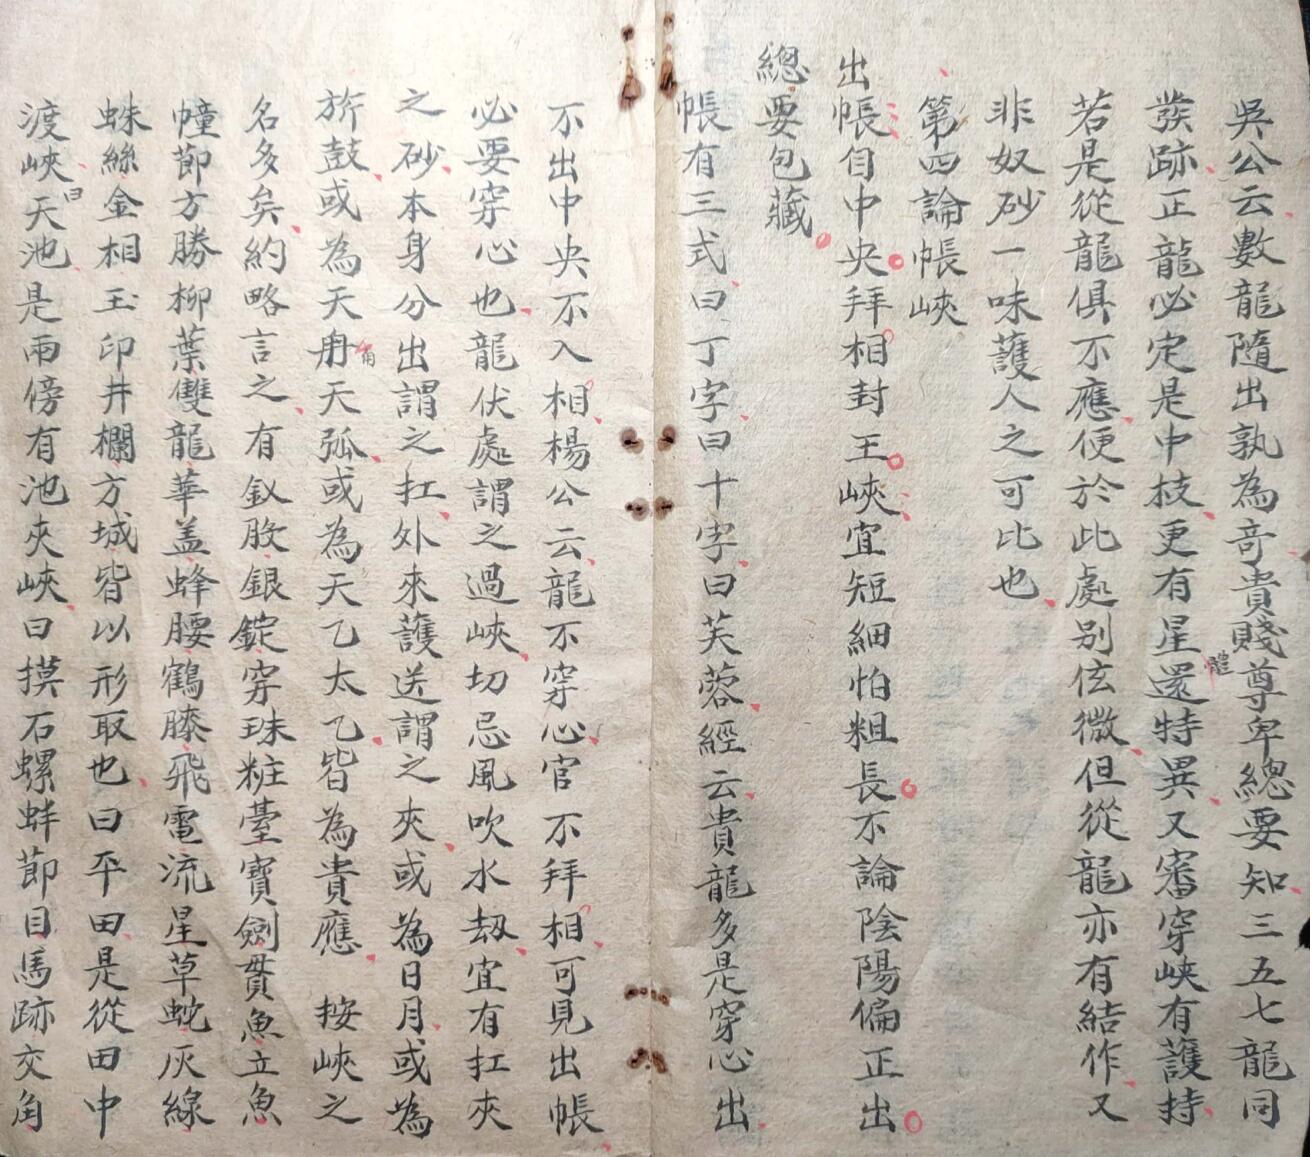 吳公云數龍隨出孰為竒貴賤尊卑總要知三五七龍同
發跡正龍必定是中枝更有星還特異又審穿峽有護持
體
若是從龍俱不應便於此處別伭微但從龍亦有結作又
非奴砂一味護人之可比也
第四論帳峽
出帳自中央拜相封王峽宜短細怕粗長不論陰陽偏正出
總要包藏
帳有三式曰丁字曰十字曰芙蓉經云貴龍多是穿心出
不出中央不入相楊公云龍不穿心官不拜相可見出帳
必要穿心也龍伏處謂之過峽切忌風吹水刼宜有扛夾
之砂本身分出謂之扛外來護送謂之夾或為日月或為
旂鼓或為天角天弧或為天乙太乙皆為貴應 按峽之
角
名多矣約略言之有釵股銀錠穿珠粧臺寶劍貫魚立魚
幢節方勝柳葉雙龍華盖蜂腰鶴膝飛電流星草蛇灰線
蛛絲金相玉印井欄方城皆以形取也曰平田是從田中
渡峽曰天池是兩傍有池夾峽曰摸石螺蚌節目馬跡交角